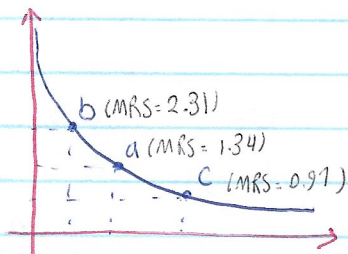 b (MRS=2.31)
a (MRS=1.34)
c (MRS=0.97)